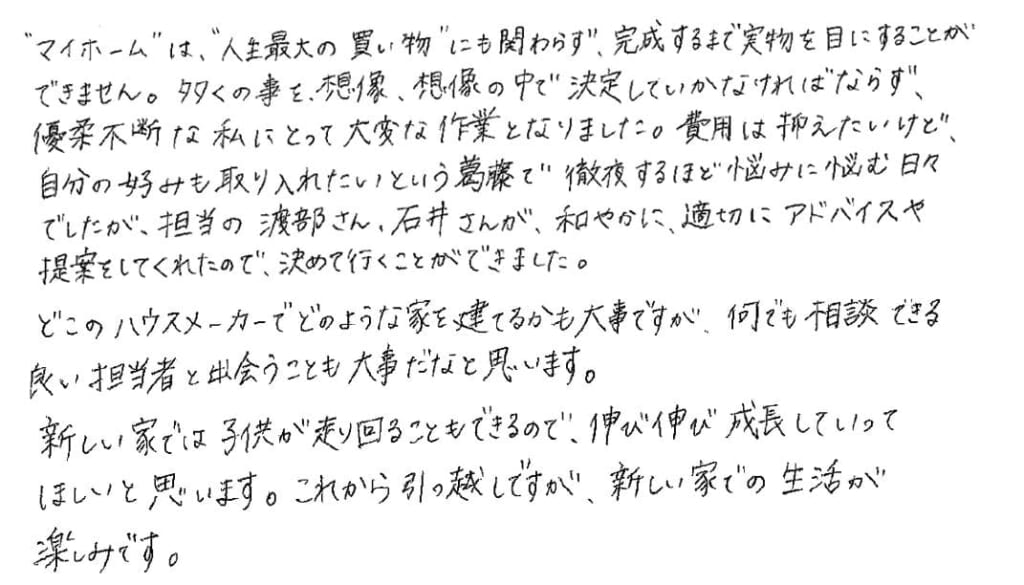 "マイホーム"は、"人生最大の買い物"にも関わらず、完成するまで実物を目にすることが
できません。多くの事を、想像、想像の中で決定していかなければならず、
優柔不断な私にとって大変な作業となりました。費用は抑えたいけど、
自分の好みも取り入れたいという葛藤で徹夜するほど悩みに悩む日々
でしたが、担当の渡部さん、石井さんが、和やかに、適切にアドバイスや
提案をしてくれたので、決めて行くことができました。
どこのハウスメーカーでどのような家を建てるかも大事ですが、何でも相談できる
良い担当者と出会うことも大事だなと思います。
新しい家では子供が走り回ることもできるので、伸び伸び成長していって
ほしいと思います。これから引っ越しですが、新しい家での生活が
楽しみです。